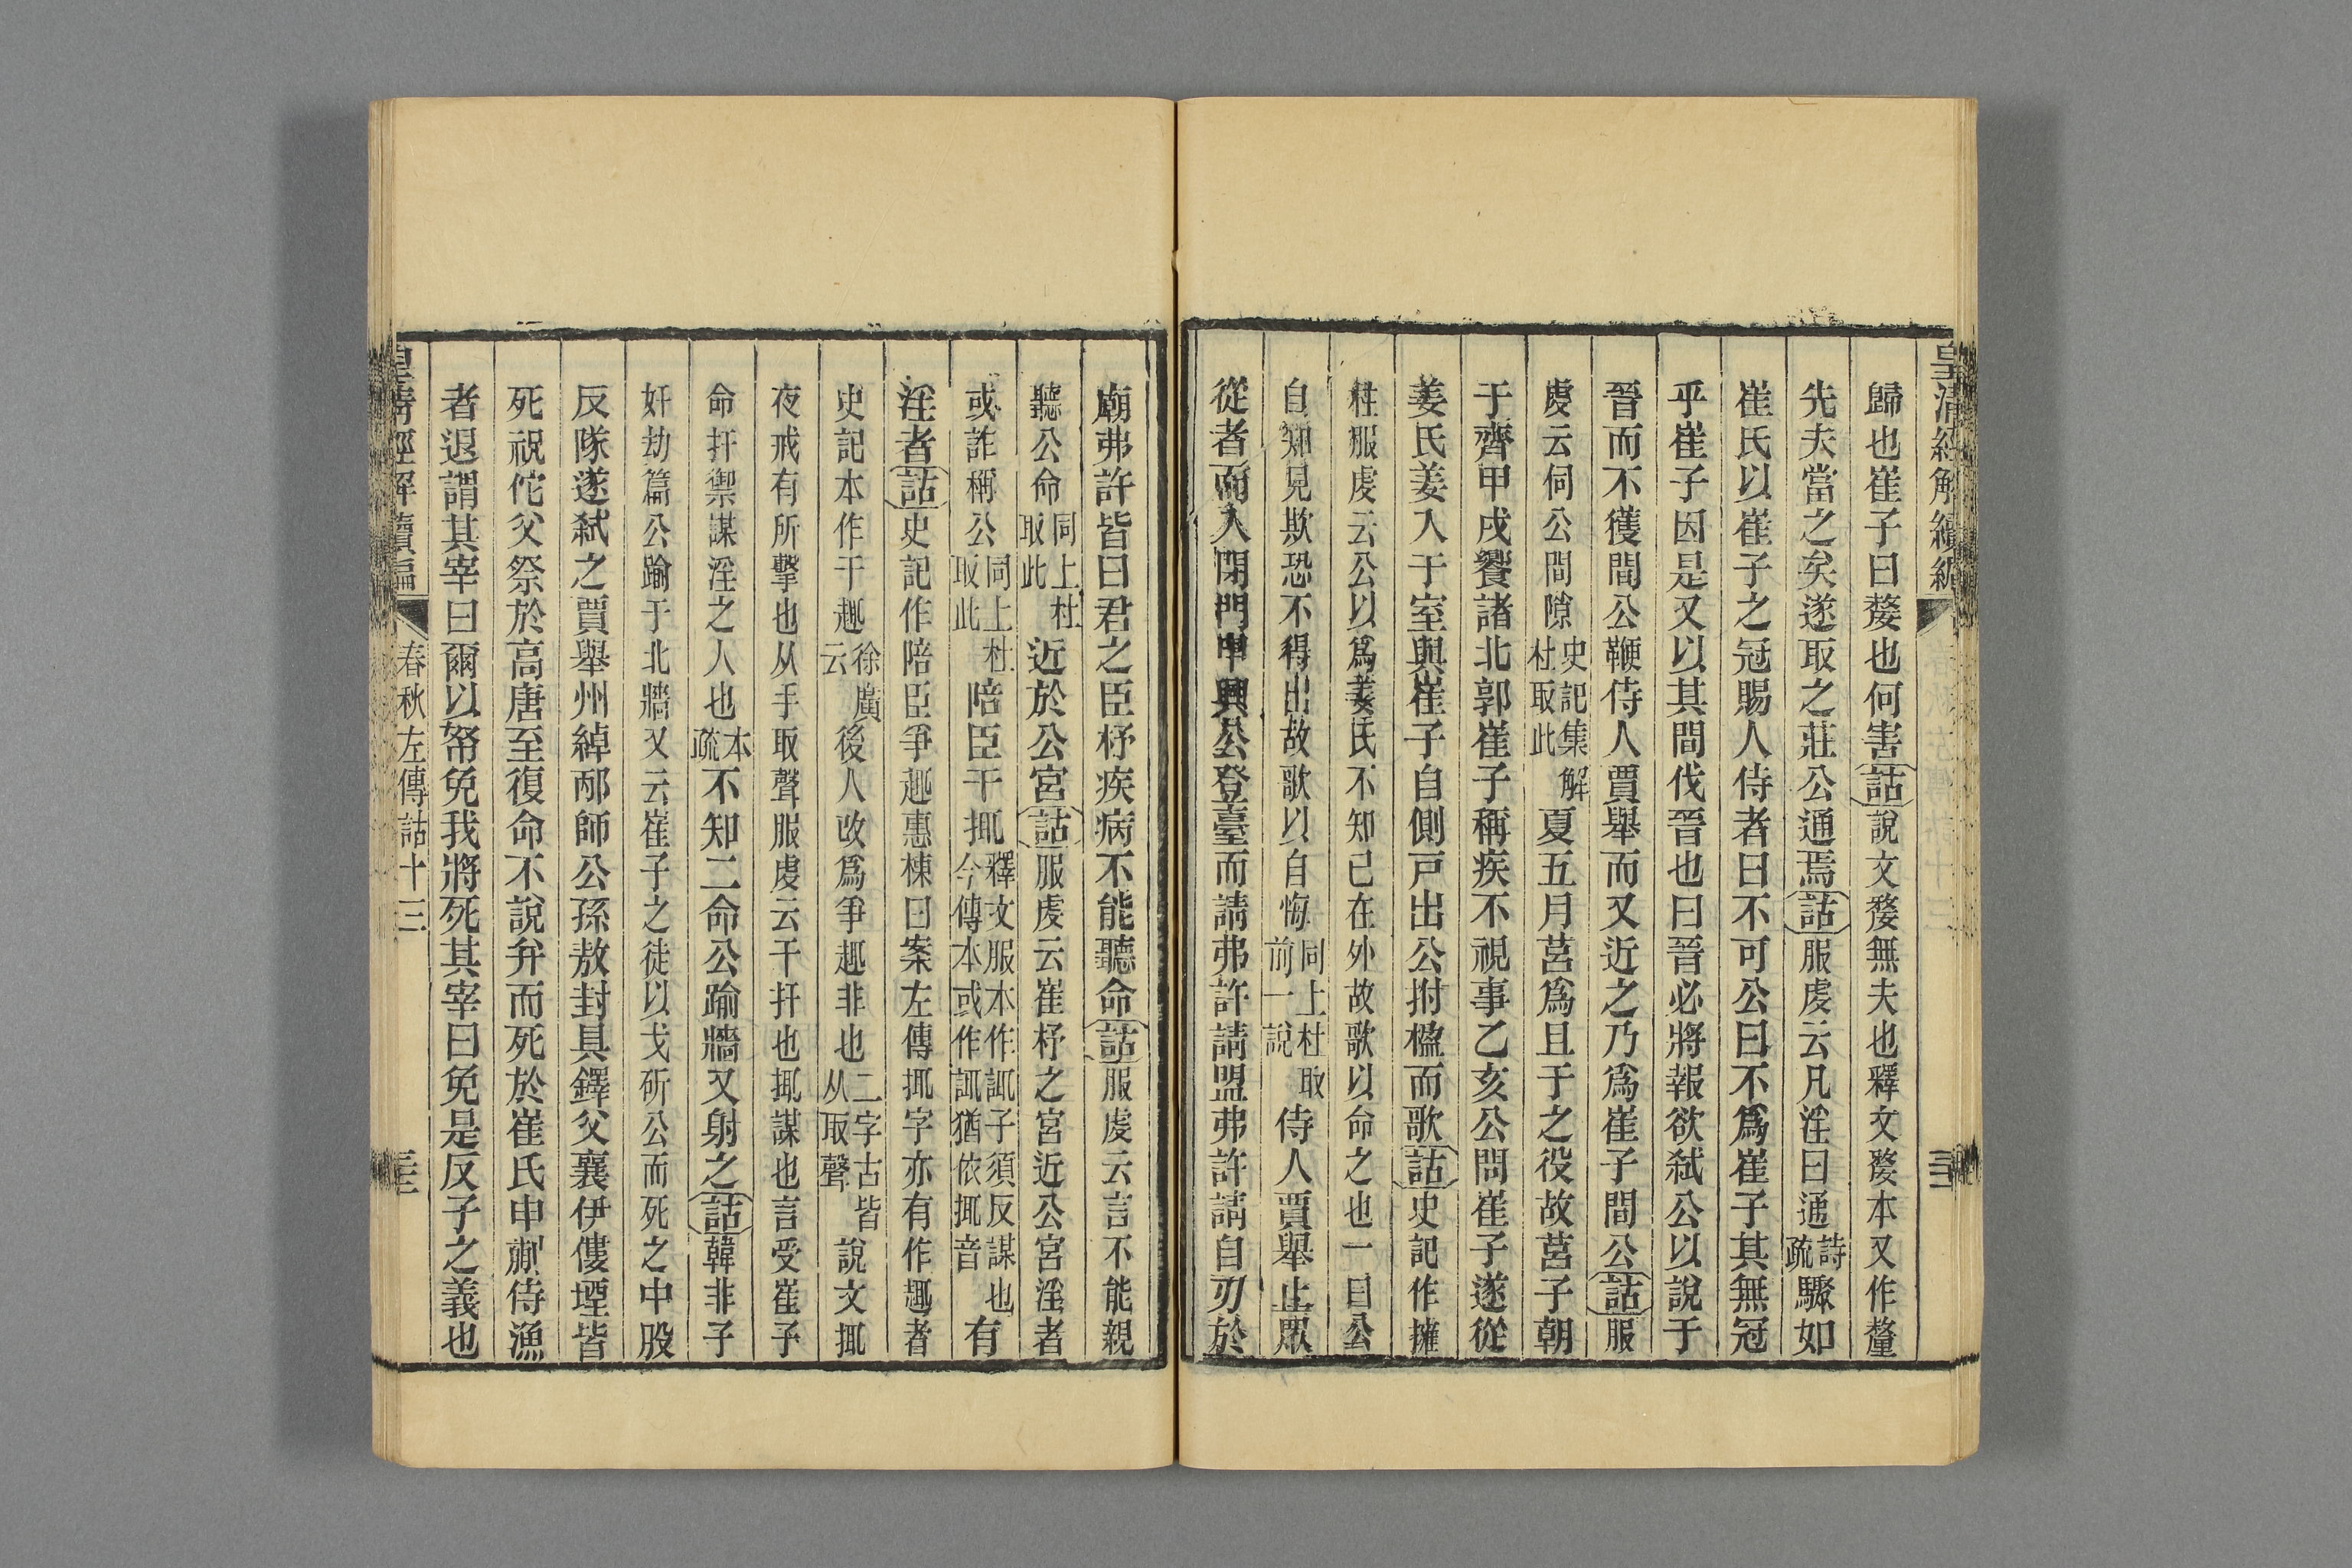 皇清經解續編
歸也崔子曰嫠也何害詁說文嫠無夫也釋文嫠本又作釐
先夫當之矣遂取之莊公通焉詁服虔云凡淫曰通詩疏驟如
崔氏以崔子之冠賜人侍者曰不可公曰不爲崔子其無冠
乎崔子因是又以其閒伐晉也曰晉必將報欲弒公以說于
晉而不獲閒公鞭侍人賈舉而又近之乃爲崔子閒公詁服
虔云伺公閒隙史記集解杜取此夏五月莒爲且于之役故莒子朝
于齊甲戌饗諸北郭崔子稱疾不視事乙亥公問崔子遂從
姜氏姜入于室與崔子自側戸出公拊楹而歌詁史記作擁
柱服虔云公以爲姜氏不知己在外故歌以命之也一曰公
自知見欺恐不得出故歌以自悔同上杜取前一說侍人賈舉止眾
從者而入閉門甲興公登臺而請弗許請盟弗許請自刃於
廟弗許皆曰君之臣杼疾病不能聽命詁服虔云言不能親
聽公命同上杜取此近於公宮詁服虔云崔杼之宮近公宮淫者
或詐稱公同上杜取此陪臣干掫釋文服本作諏子須反謀也今傳本或作諏猶依掫音有
淫者詁史記作陪臣爭趣惠棟曰案左傳掫字亦有作趣者
史記本作干趣徐廣云後人改爲爭趣非也二字古皆从取聲說文掫
夜戒有所擊也从手取聲服虔云干扞也掫謀也言受崔子
命扞禦謀淫之人也本疏不知二命公踰牆又射之詁韓非子
奸劫篇公踰于北牆又云崔子之徒以戈斫公而死之中股
反隊遂弒之賈舉州綽邴師公孫敖封具鐸父襄伊僂堙皆
死祝佗父祭於高唐至復命不說弁而死於崔氏申蒯侍漁
者退謂其宰曰爾以帑免我將死其宰曰免是反子之義也
皇清經解續編 春秋左傳詁十三